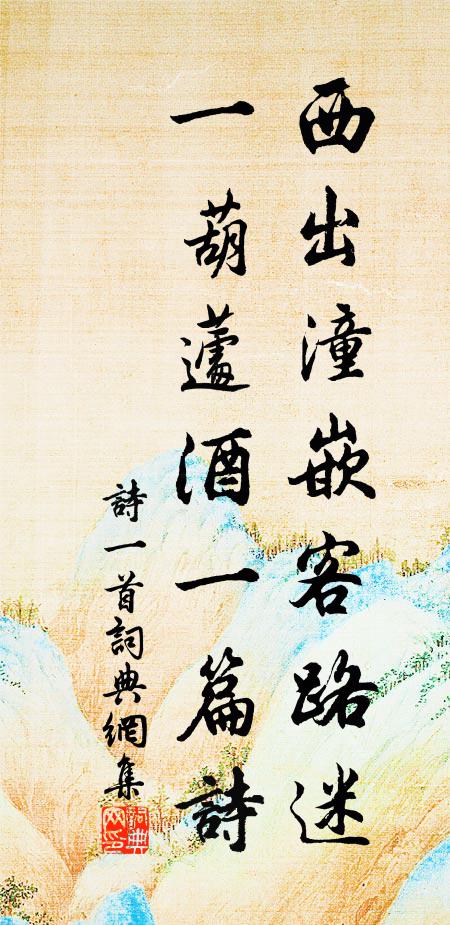 西出潼嵌客路迷
一葫蘆酒一篇詩
詩一首詞典網集
詞典网印